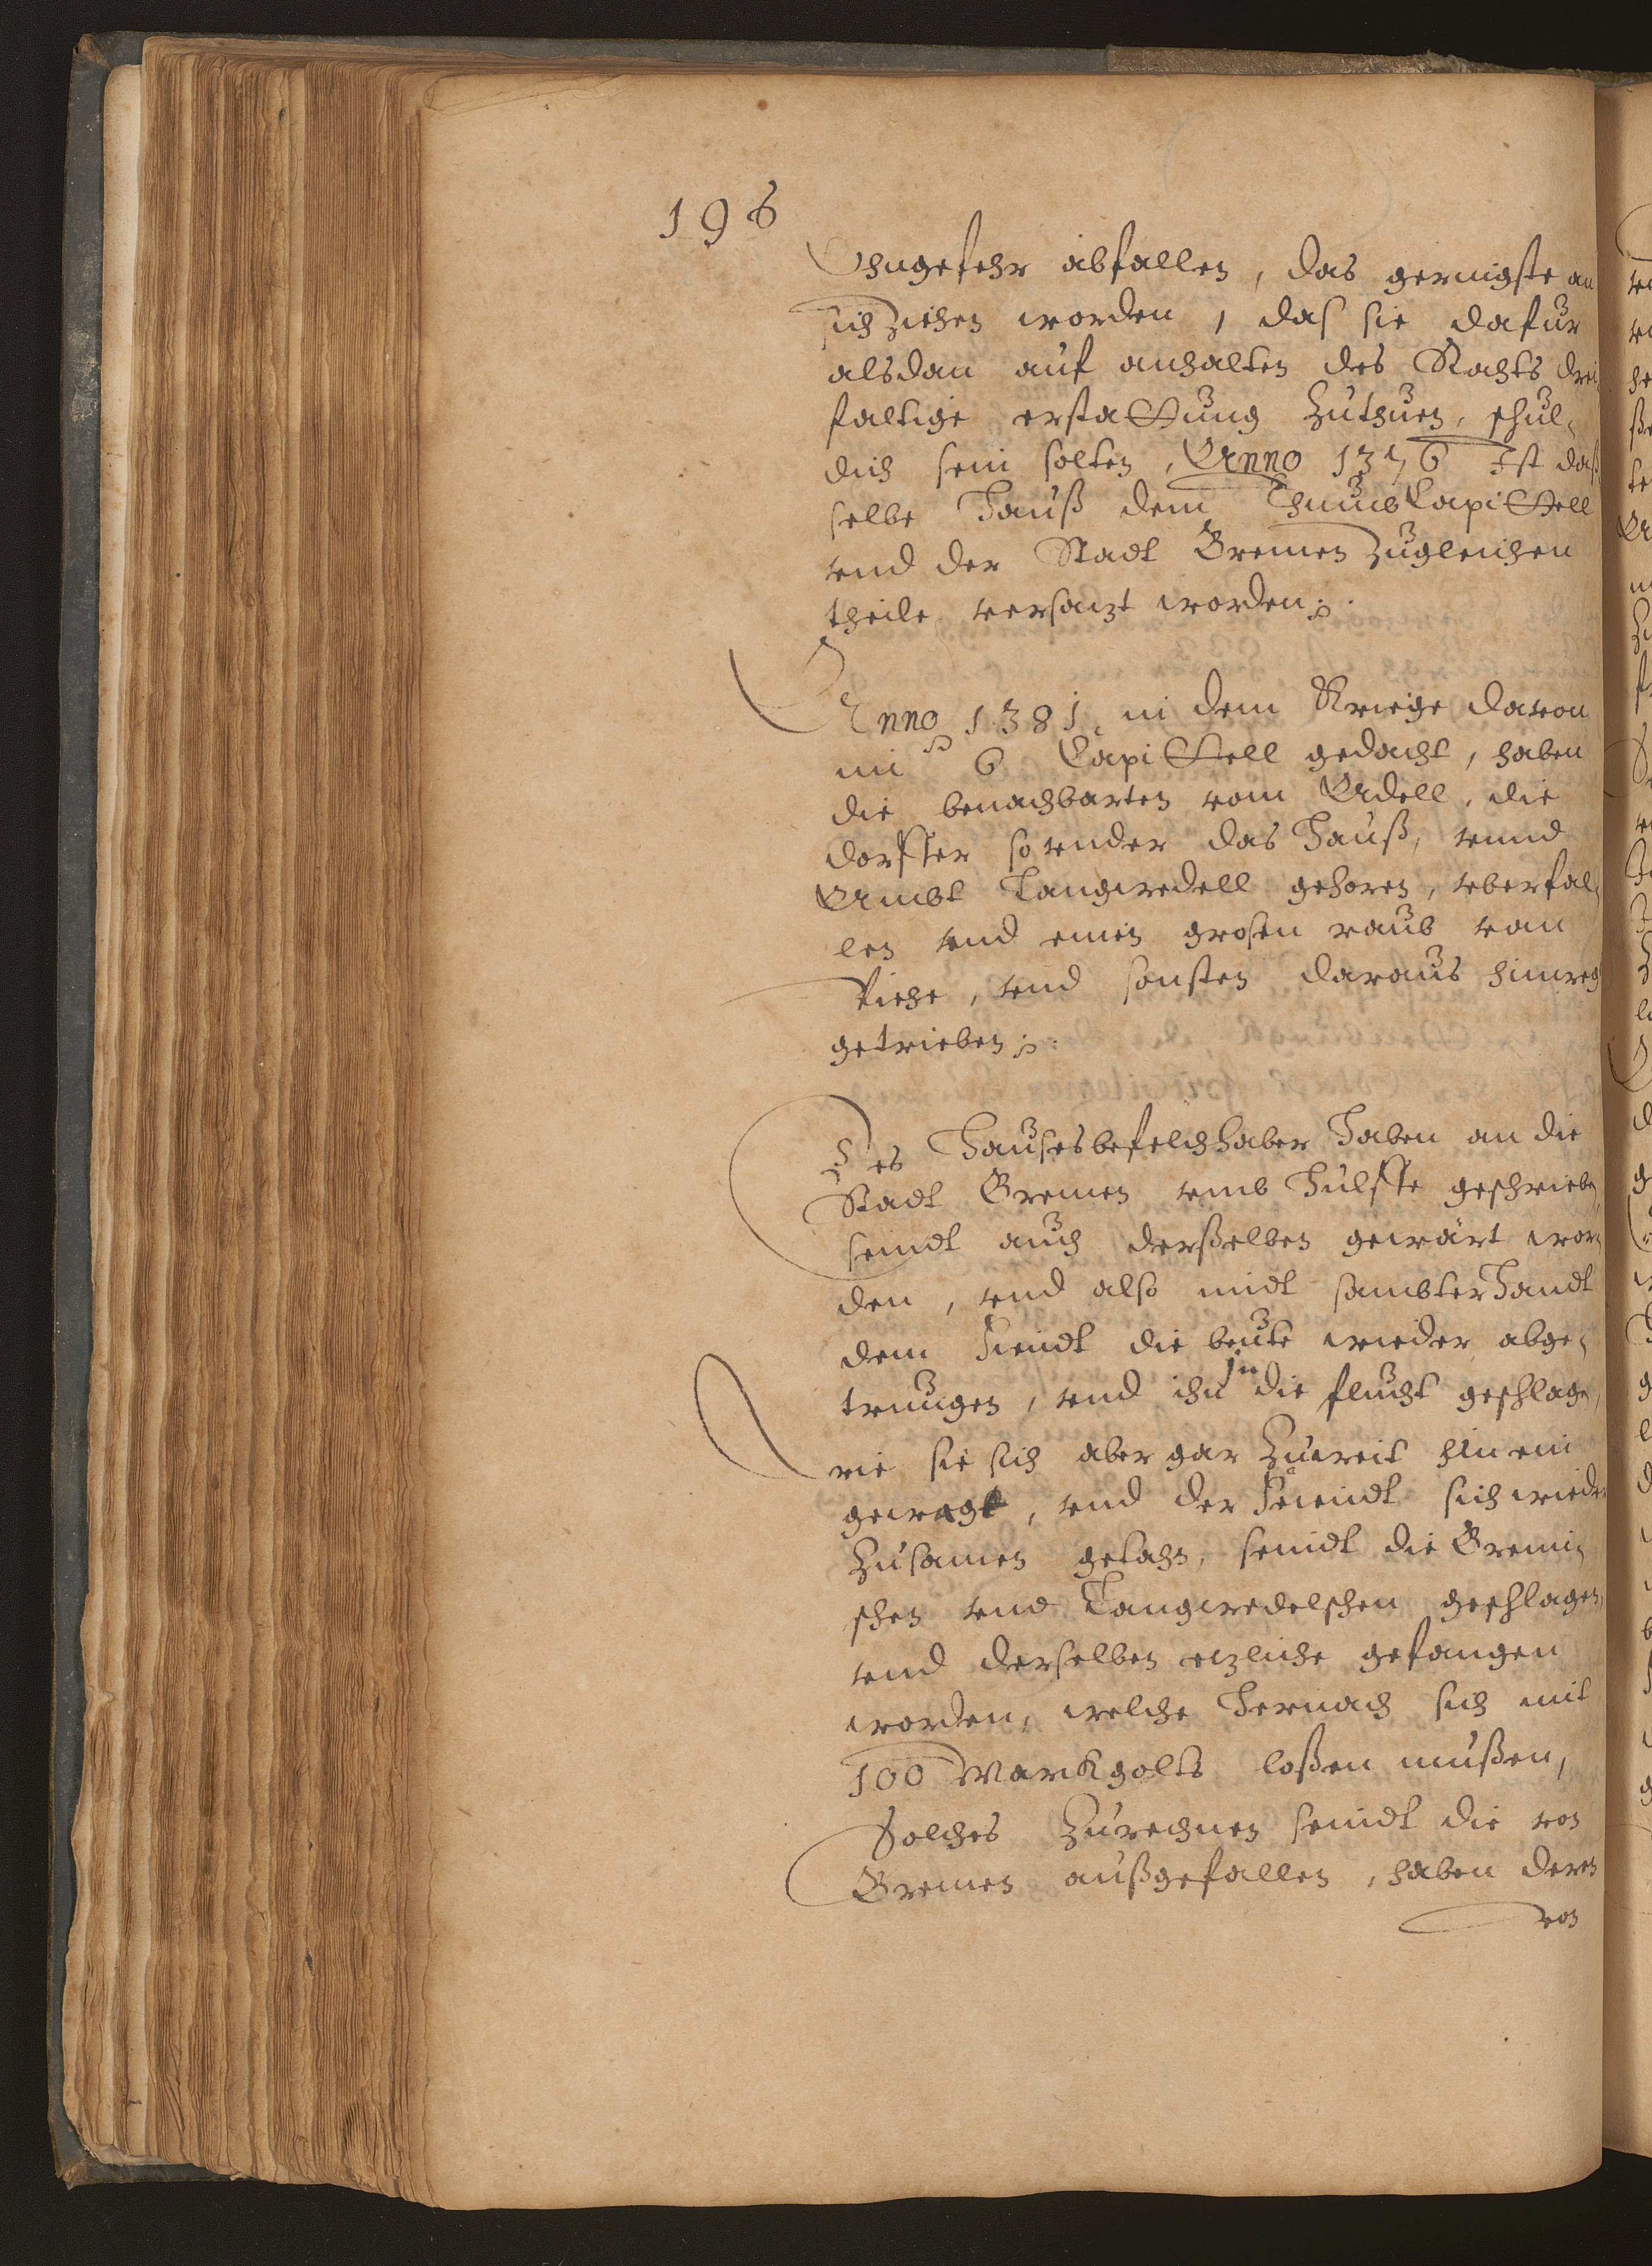 196
Ohngefehr abfallen, das geringste an
sich ziehen worden, das sie dafur
alsdan auf anhalten des Rahts drei
faltige erstattung zuthuen, schul,
dich sein solten, Anno 1376 Ist das
selbe Hauß dem ThumbCapittell
vnd der Stadt Bremen zugleichen
theile versatzt worden.
Anno 1381 in dem Kriege davon
im 6 Capittell gedacht, haben
die benachbarten vom Adell, die
dorffer so vnder das Hauß, vnnd
Ambt Langwedell gehoren, vberfal,
len vnd einen grosen raub van
Viehe, vnd sonsten daraus hinweg
getrieben.
Des Hausesbefelchhaber Haben an die
Stadt Bremen vmb Hulffe geschrieben
seindt auch derßelben gewärt wor,
den, vnd also midt sambter Handt
dem Fiendt die beute wieder abge,
trungen, vnd ihn in die flucht geschlagen,
wie sie sich aber gar zuweit hinein
gewagt, vnd der Feiendt sich wieder
zusamen gethan, seindt die Bremi,
schen vnd Langwedelschen geschlagen,
vnd derselben etzliche gefangen
worden, welche Hernach sich mit
100 Mark golts loßen mußen,
Solches zurechnen seindt die von
Bremen außgefallen, haben deren
von